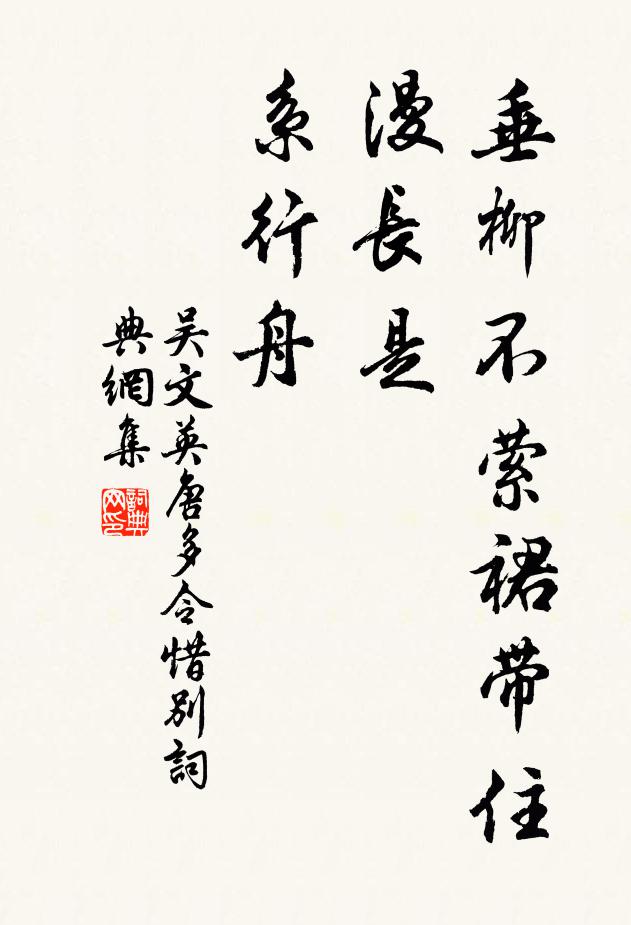 垂柳不萦裙带住
漫長是
系行舟
吴文英唐多令惜别詞
典網集
詞典网印